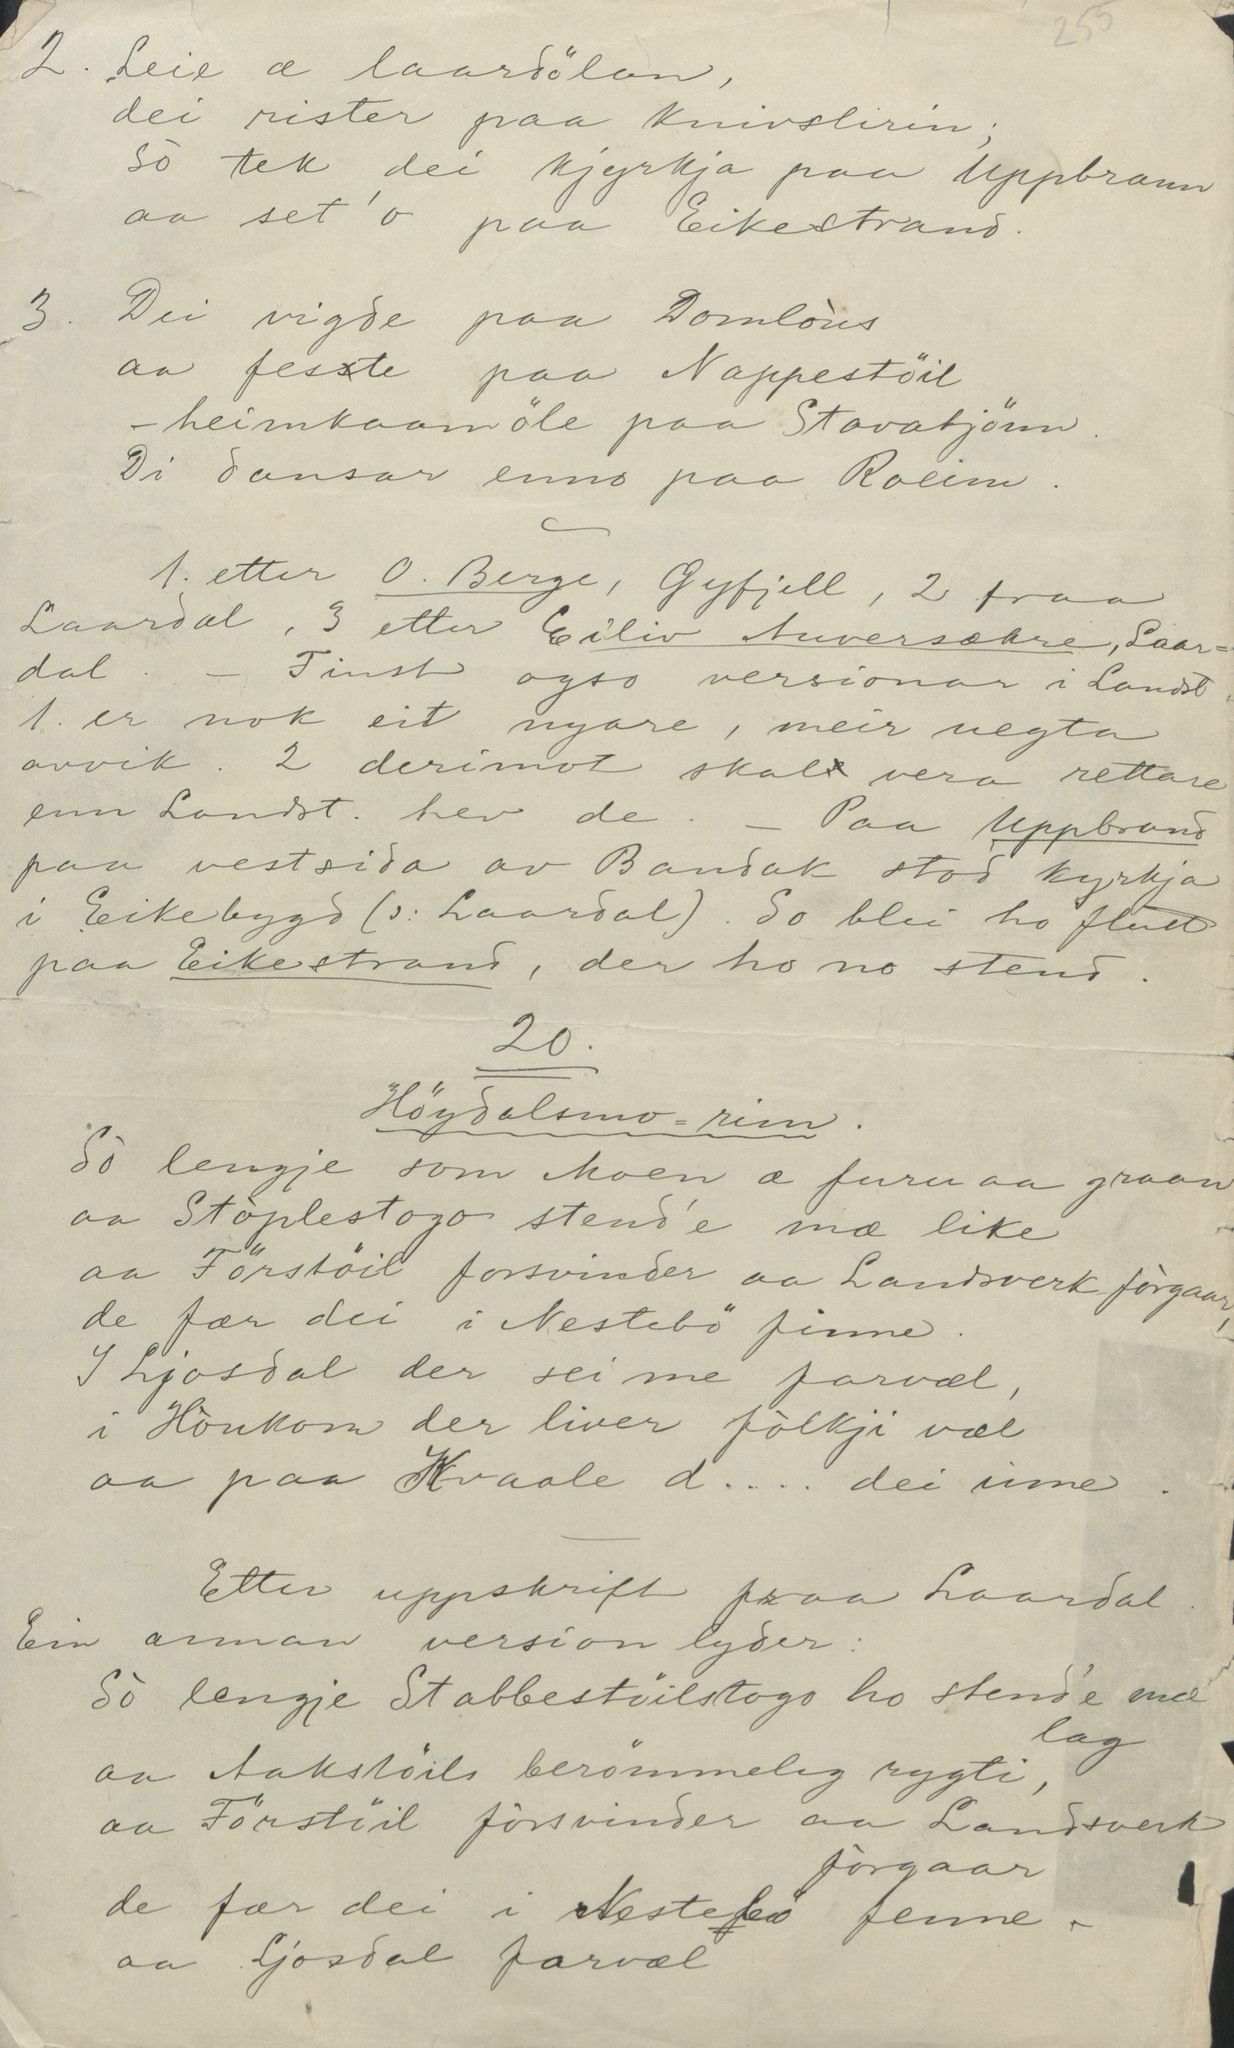 255
2. Leie æ laardölan,
dei rister paa knivslirin;
So tek dei kjyrkja paa Uppbrann
aa set'o paa Eikestrand.
3. Dei vigde paa Domlòus
aa feste paa Nappestöil
- heimkaamöle paa Stavatjönn.
Di dansar enno paa Roeim.
1. etter O. Berge, Gyfjell, 2 fraa
Laardal, 3 etter Eiliv Auversækre, Laar=
dal. - Finst ogso versionar i Landst.
1. er nok eit nyare, meir uegta
avvik. 2 derimot skal vera rettare
enn Landst. hev de. - Paa Uppbrand
paa vestsida av Bandak stod kyrkja
i Eikebygd (ɔ: Laardal) So blei ho flutt
paa Eikestrand, der ho no stend.
20.
Höydalsmo=rim.
Sò lengje som Moen æ furu aa graan
aa Stòplestogo stend'e mæ like
aa Förstöil forsvinder aa Landsverk fòrgaar,
de fær dei i Nestebö finne.
I Ljosdal der sei me farvæl,
i Hònkom der liver fòlkji væl
aa paa Kvaale d.... dei inne.
Etter uppskrift fraa Laardal.
Ein annan version lyder:
Sò lengje Stabbestöilstogo ho stend'e mæ
lag
aa Aakstöils berömmeleg rygti,
aa Förstöil fòrsvinder aa Landsverk
fòrgaar
de fær dei i Nestebö fenne -
aa Ljosdal farvæl